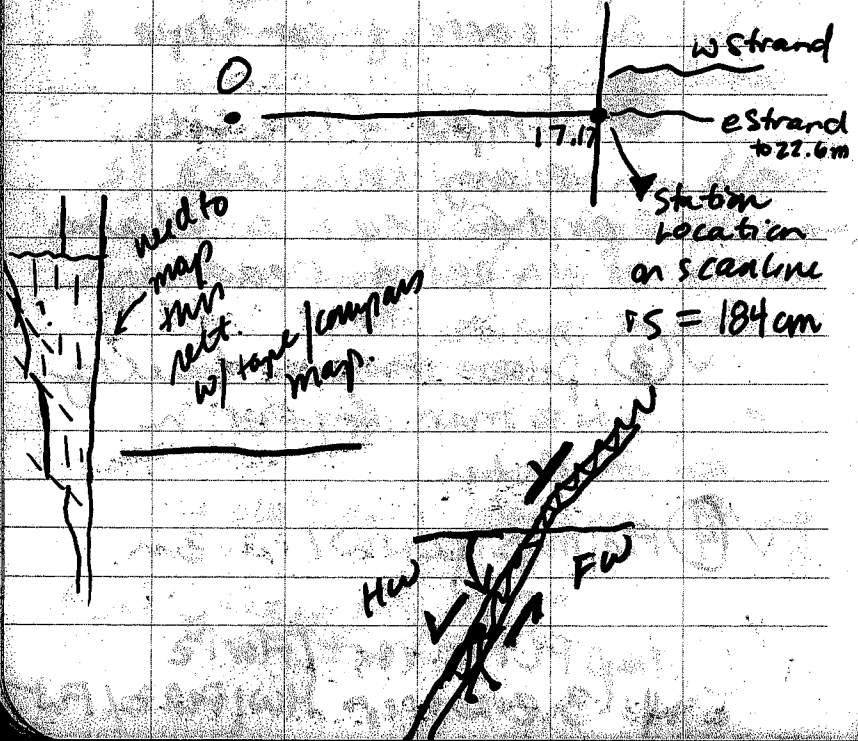 O
w strand
17.17
e strand
to 22.6 m
Station
Location
on scanline
rs = 184 cm
need to
map
this
relt.
w/ tape/compass
map.
HW
FW